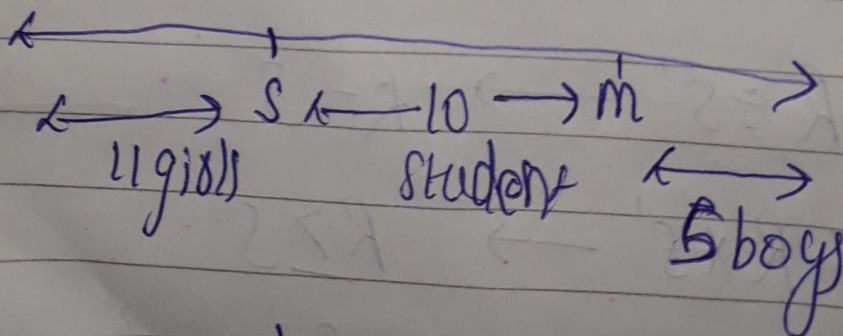 S 10 m
11 girls student
5 boys